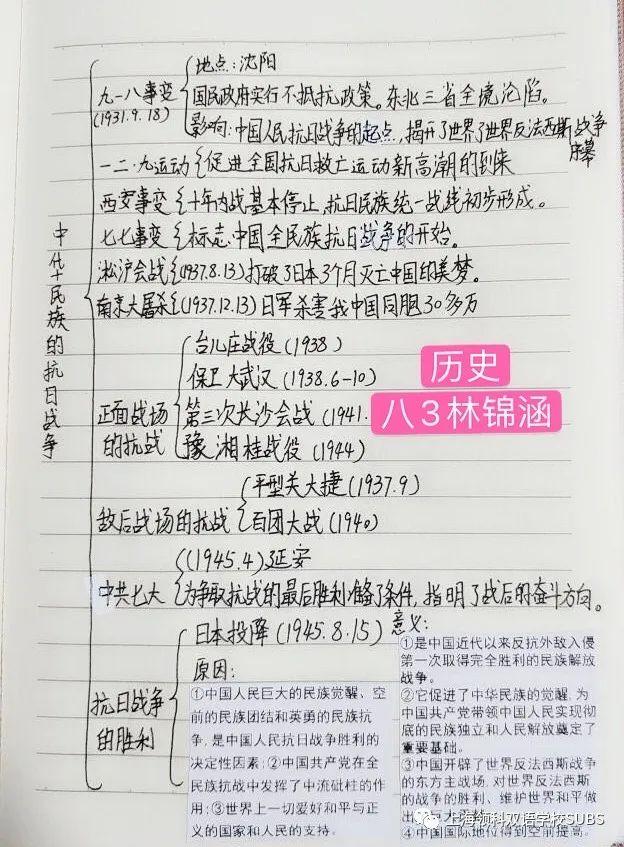 中华民族的抗日战争
九一八事变
(1931.9.18)
地点:沈阳
国民政府实行不抵抗政策。东北三省全境沦陷。
影响:中国人民抗日战争的起点,揭开了世界了世界反法西斯战争
序幕
一二·九运动 促进全国抗日救亡运动新高潮的到来
西安事变 十年内战基本停止,抗日民族统一战线初步形成。
七七事变 标志中国全民族抗日战争的开始。
淞沪会战 (1937.8.13)打破了日本3个月灭亡中国的美梦。
南京大屠杀 (1937.12.13)日军杀害我中国同胞30多万
正面战场
的抗战
台儿庄战役(1938)
保卫大武汉(1938.6-10)
第三次长沙会战(1941.
豫湘桂战役(1944)
历史
八3林锦涵
敌后战场的抗战
平型关大捷(1937.9)
百团大战(1940)
中共七大
(1945.4)延安
为争取抗战的最后胜利准备了条件,指明了战后的奋斗方向。
抗日战争
的胜利
日本投降(1945.8.15)
原因:
①中国人民巨大的民族觉醒、空
前的民族团结和英勇的民族抗
争,是中国人民抗日战争胜利的
决定性因素;②中国共产党在全
民族抗战中发挥了中流砥柱的作
用;③世界上一切爱好和平与正
义的国家和人民的支持。
意义:
①是中国近代以来反抗外敌入侵
第一次取得完全胜利的民族解放
战争。
②它促进了中华民族的觉醒,为
中国共产党带领中国人民实现彻
底的民族独立和人民解放奠定了
重要基础。
③中国开辟了世界反法西斯战争
的东方主战场,对世界反法西斯
的战争的胜利、维护世界和平做
出
④中国国际地位得到空前提高。
上海领科双语学校SUBS